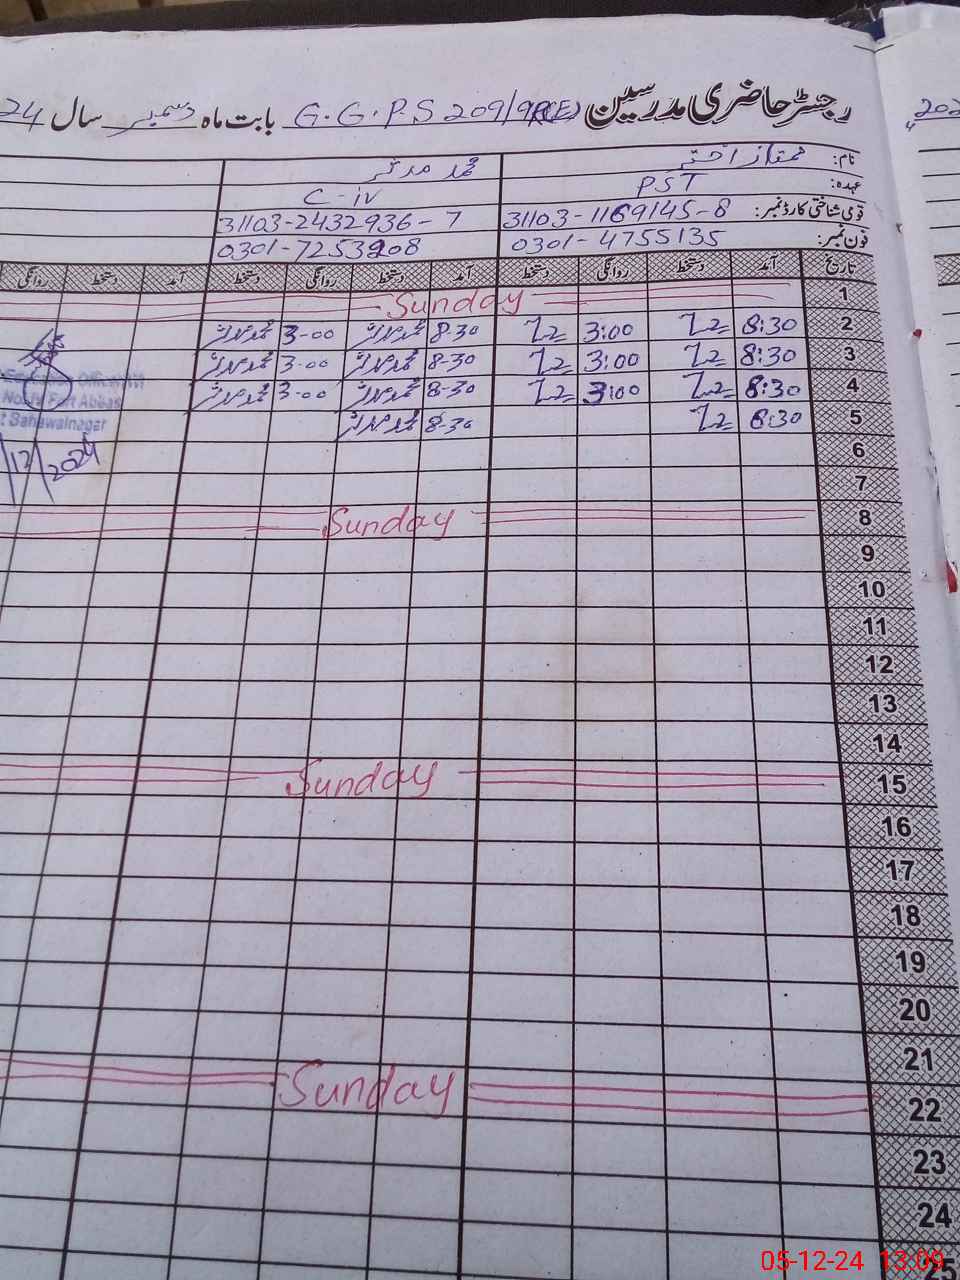 رجسٹر حاضری مدرسین G.G.P.S 209/9R(E) بابت ماہ دسمبر سال 24
202
نام: ممتاز اختر محمد مدثر
عہدہ: PST C-iv
قومی شناختی کارڈ نمبر: 31103-1169145-8 31103-2432936-7
فون نمبر: 0301-4755135 0301-7253908
تاریخ آمد دستخط روانگی دستخط آمد دستخط روانگی دستخط آمد دستخط روانگی
1 Sunday
2 8:30 3:00 8-30 3-00
3 8:30 3:00 8-30 3-00
4 8:30 3:00 8-30 3-00
5 8:30 8-30
6
7
8 Sunday
9
10
11
12
13
14
15 Sunday
16
17
18
19
20
21
22 Sunday
23
24
25
Fort Abbas
Bahawalnagar
/12/2024
05-12-24 13:09